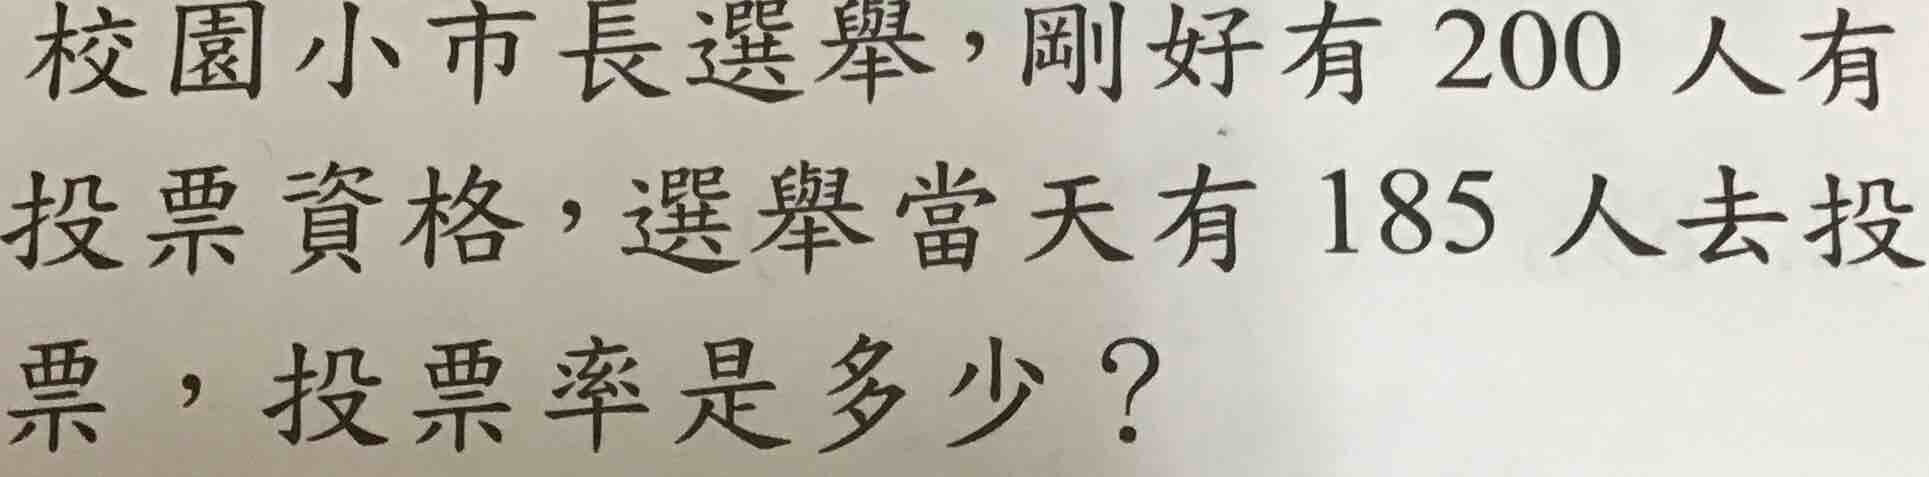 校園小市長選舉，剛好有 200 人有
投票資格，選舉當天有 185 人去投
票，投票率是多少？